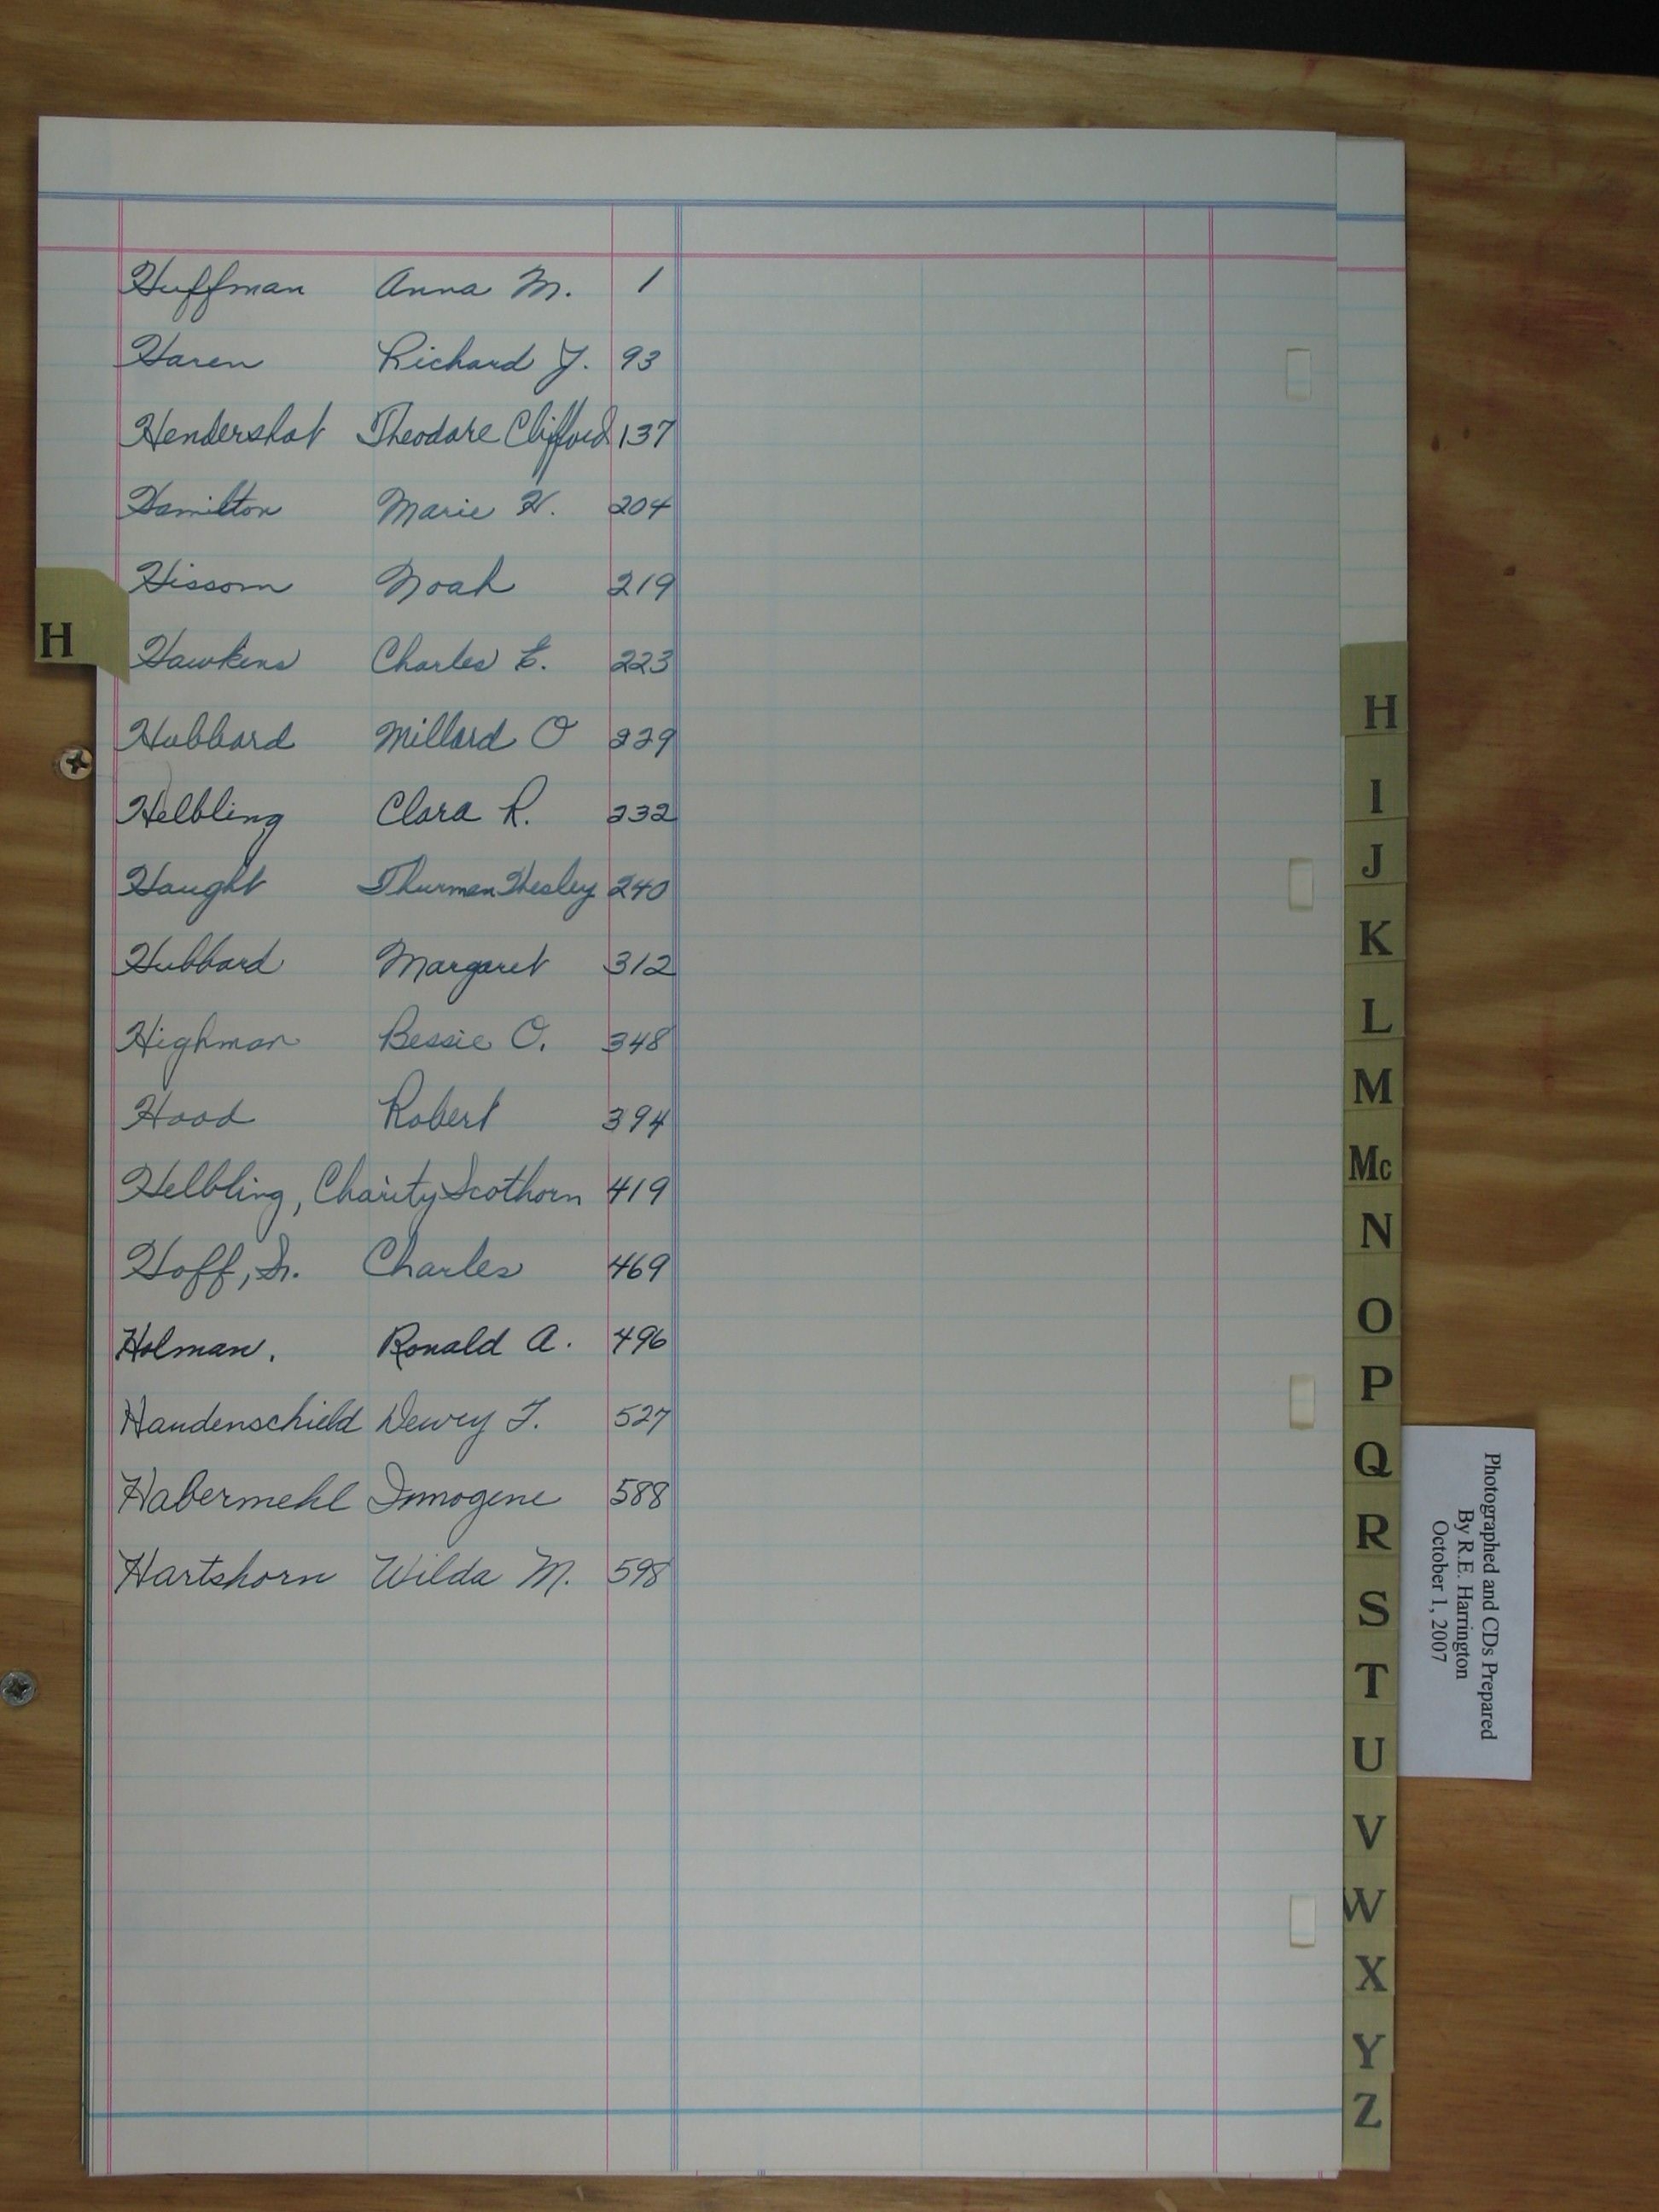 Huffman Anna M. 1
Haren Richard Y. 93
Hendershot Theodore Clifford 137
Hamilton Marie H. 204
Hissom Noah 219
H
Hawkins Charles E. 223
Hubbard Millard O 229
Helbling Clara R. 232
Haught Thurman Wesley 240
Hubbard Margaret 312
Highman Bessie O. 348
Hood Robert 394
Helbling, Charity Scothorn 419
Hoff, Sr. Charles 469
Holman. Ronald A. 496
Haudenschield Dewey F. 527
Habermehl Imogene 588
Hartshorn Wilda M. 598
H
I
J
K
L
M
Mc
N
O
P
Q
R
S
T
U
V
W
X
Y
Z
Photographed and CDs Prepared
By R.E. Harrington
October 1, 2007